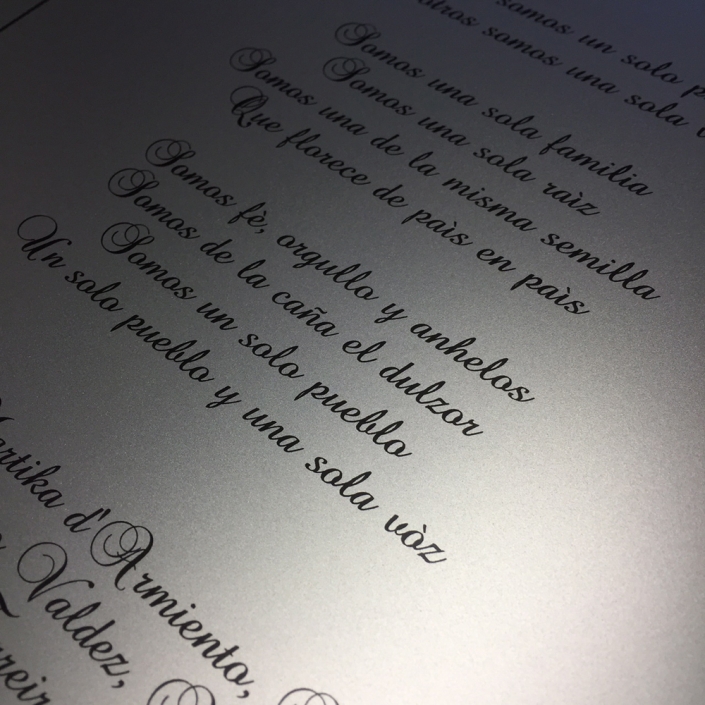 somos un solo
somos una sola
Somos una sola familia
Somos una sola raìz
Somos una de la misma semilla
Que florece de paìs en paìs
Somos fè, orgullo y anhelos
Somos de la caña el dulzor
Somos un solo pueblo
Un solo pueblo y una sola vòz
d'Armiento,
Valdez,